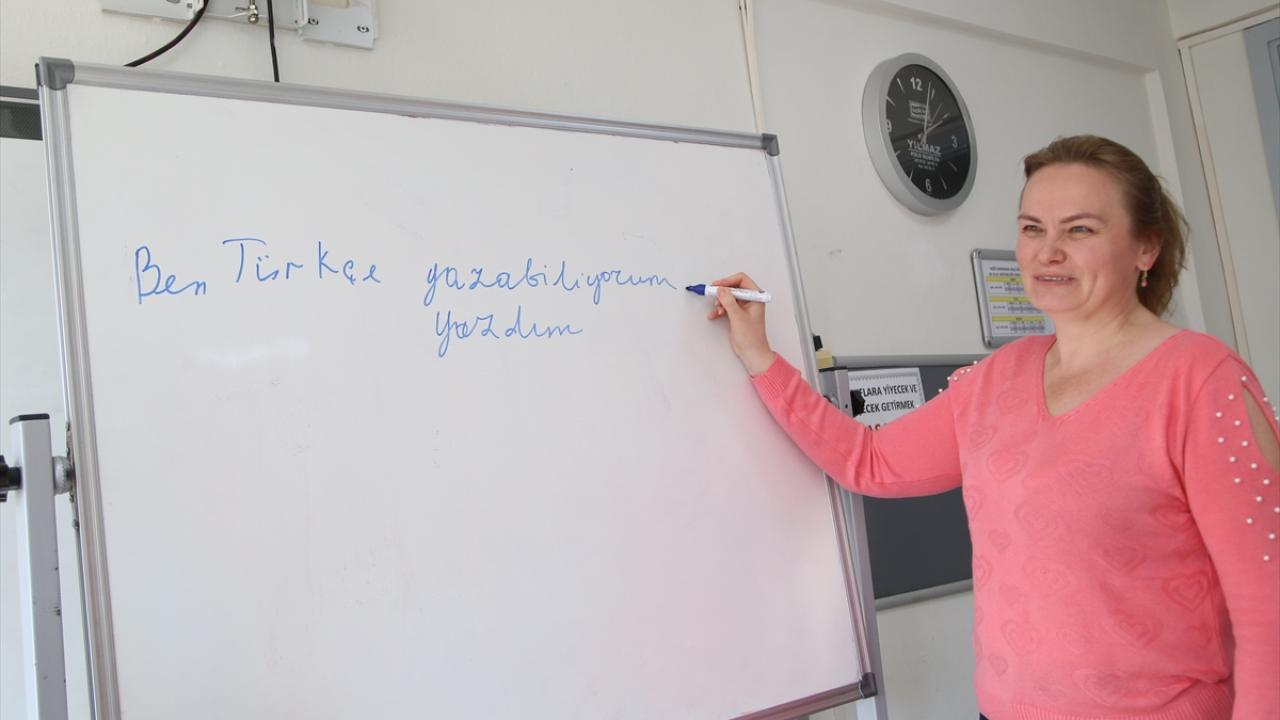 Ben Türkçe yazabiliyorum
yazdım
12
9
3
6
YILMAZ
FLARA YİYECEK VE
ECEK GETİRMEK